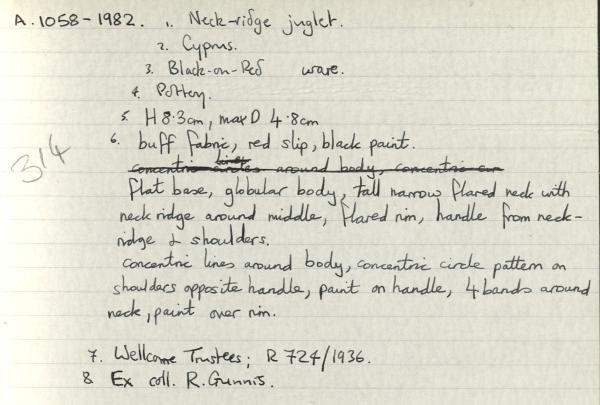 A.1058-1982. 1. Neck-ridge juglet.
2. Cyprus.
3. Black-on-Red ware.
4. Pottery.
5. H 8.3cm, max D 4.8cm
6. buff fabric, red slip, black paint.
314
lines
concentric circles around body, concentric cir
flat base, globular body, tall narrow flared neck with
neck ridge around middle, flared rim, handle from neck-
ridge & shoulders.
concentric lines around body, concentric circle pattern on
shoulders opposite handle, paint on handle, 4 bands around
neck, paint over rim.
7. Wellcome Trustees; R 724/1936.
8 Ex coll. R. Gunnis.